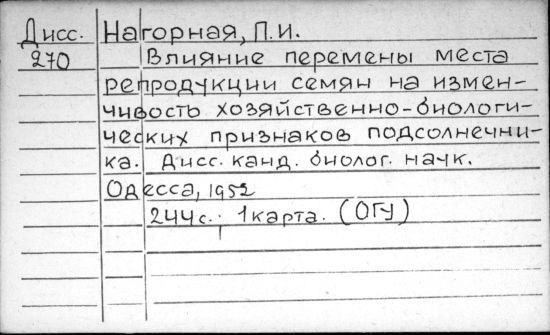 Дисс. Нагорная, П.И.
270 Влияние перемены места
репродукции семян на измен-
чивость хозяйственно-биологи-
ческих признаков подсолнечни-
ка. Дисс. канд. биолог. наук.
Одесса, 1952
244 с. 1 карта. (ОГУ)